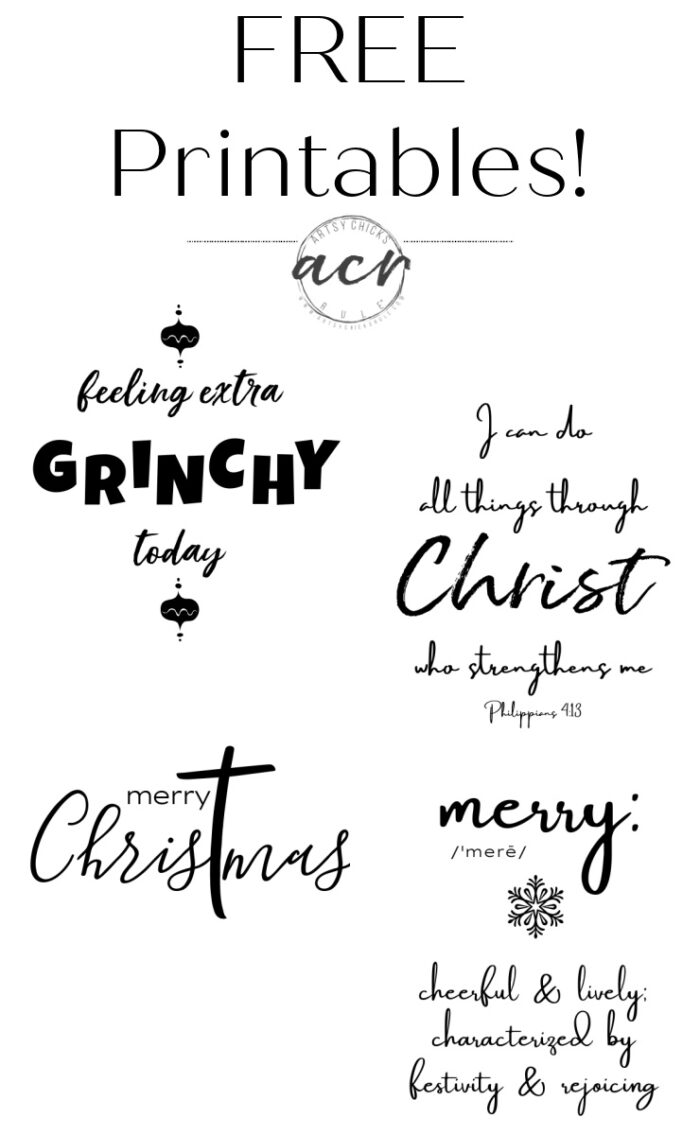 FREE
Printables!
ARTSY CHICKS
acr
RULE
WWW.ARTSYCHICKSRULE.COM
feeling extra
GRINCHY
today
I can do
all things through
Christ
who strengthens me
Philippians 4:13
merry
Christmas
merry:
/'merē/
cheerful & lively;
characterized by
festivity & rejoicing